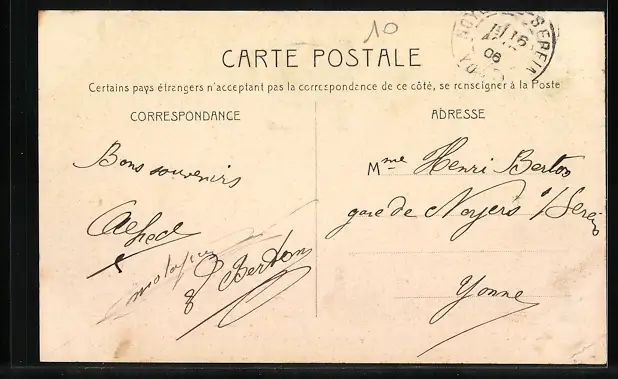 10
NOYERS S. SEREIN
16
06
YONNE
CARTE POSTALE
Certains pays étrangers n'acceptant pas la correspondance de ce côté, se renseigner à la Poste
CORRESPONDANCE
ADRESSE
Bons souvenirs
Mme Henri Berton
gare de Noyers s/Serein
Yonne
Berton